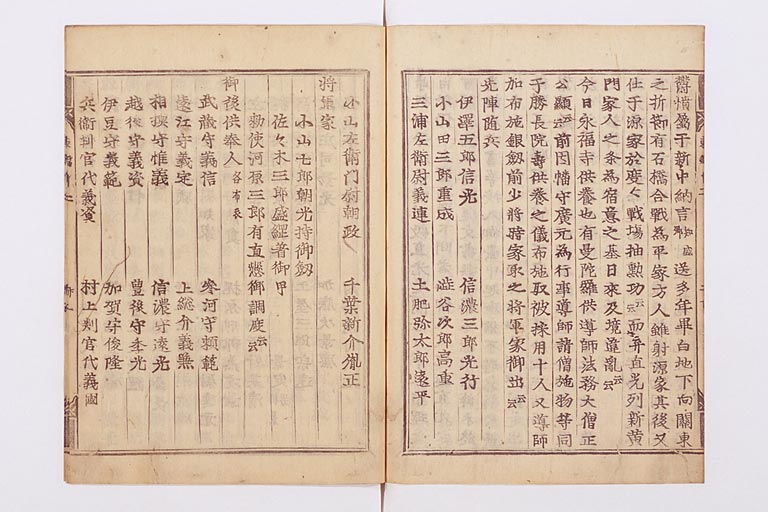 欝憤属于新中納言知盛送多年畢白地下向關東
之折節有石橋合戰為平家方人雖射源家其後又
仕于源家於度々戰場抽勲功云云而弃直光列新黄
門家人之条為宿意之基日來及境違亂云云
今日永福寺供養也有曼陀羅供導師法務大僧正
公顯云云前因幡守廣元為行事導師請僧施物等同
于勝長院壽供養之儀布施取被採用十人又導師
加布施銀劔前少將時家取之將軍家御出云云
先陣随兵
伊澤五郎信光 信濃三郎光行
小山田三郎重成 澁谷次郎高重
三浦左衛尉義連 土肥弥太郎遠平
小山左衛門尉朝政 千葉新介胤正
將軍家
小山七郎朝光持御劔
佐々木三郎盛綱著御甲
勅使河原三郎有直懸御調度云云
御後供奉人各布衣
武藏守義信 参河守頼範
遠江守義定 上総介義兼
相摸守惟義 信濃守遠光
越後守義資 豊後守季光
伊豆守義範 加賀守俊隆
兵衛判官代義資 村上判官代義國